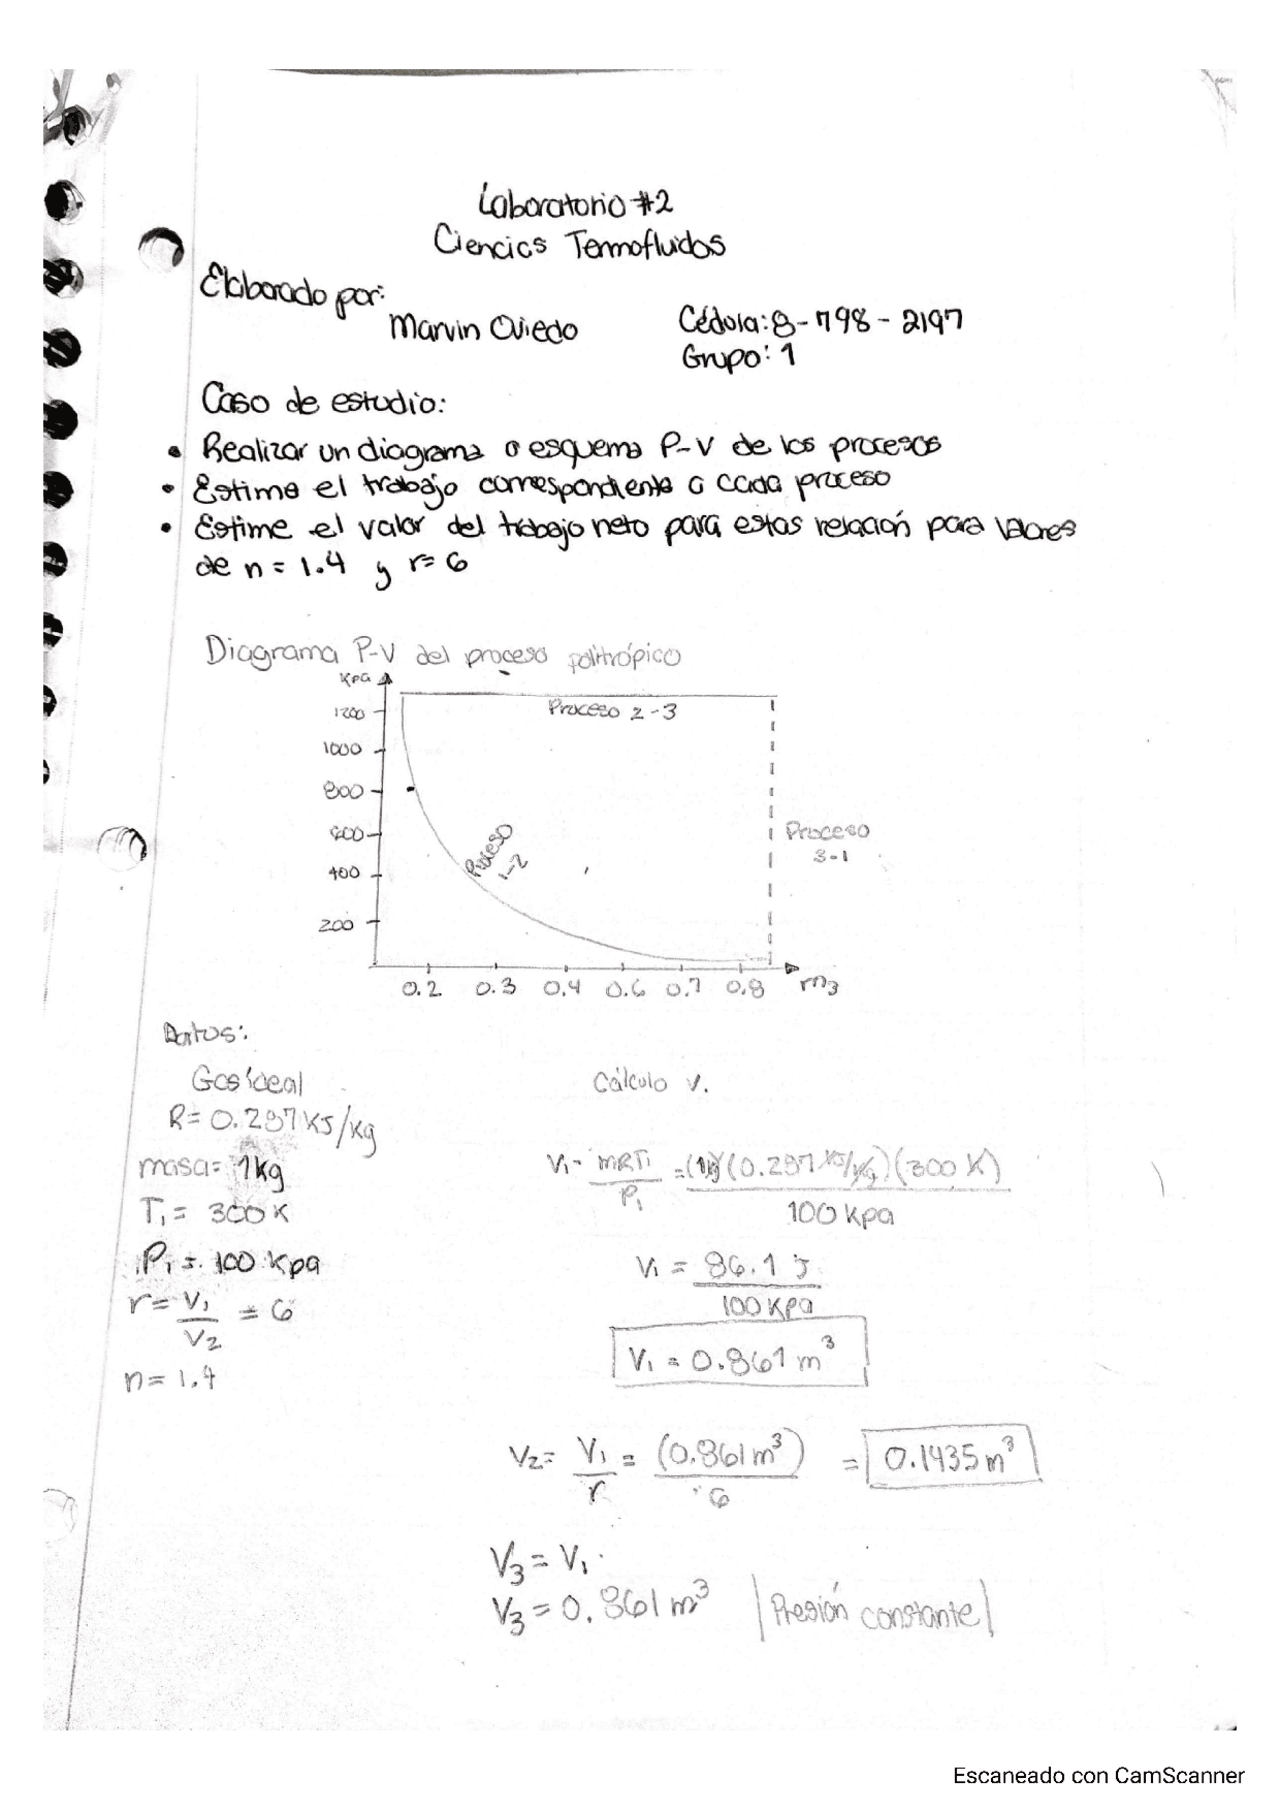 Laboratorio #2
Ciencias Termofluidos
Elaborado por:
Marvin Oviedo
Cédula: 8-798-2197
Grupo: 1
Caso de estudio:
• Realizar un diagrama o esquema P-V de los procesos
• Estime el trabajo correspondiente a cada proceso
• Estime el valor del trabajo neto para estas relación para valores
de n = 1.4 y r= 6
Diagrama P-V del proceso politrópico
Kpa
1200
1000
800
600
400
200
Proceso 2-3
Proceso
1-2
Proceso
3-1
0.2 0.3 0.4 0.6 0.7 0.8 m3
Datos:
Gas ideal
R= 0.287 KJ/kg
masa= 1kg
T1= 300K
P1 = 100 Kpa
r= V1/V2 = 6
n= 1.4
Cálculo V.
V1= mRT1/P1 = (1kg)(0.287 KJ/kg)(300 K)/100 kpa
V1 = 86.1 J/100 Kpa
V1 = 0.861 m³
V2= V1/r = (0.861 m³)/6 = 0.1435 m³
V3 = V1
V3 = 0.861 m³ |Presión constante|
Escaneado con CamScanner